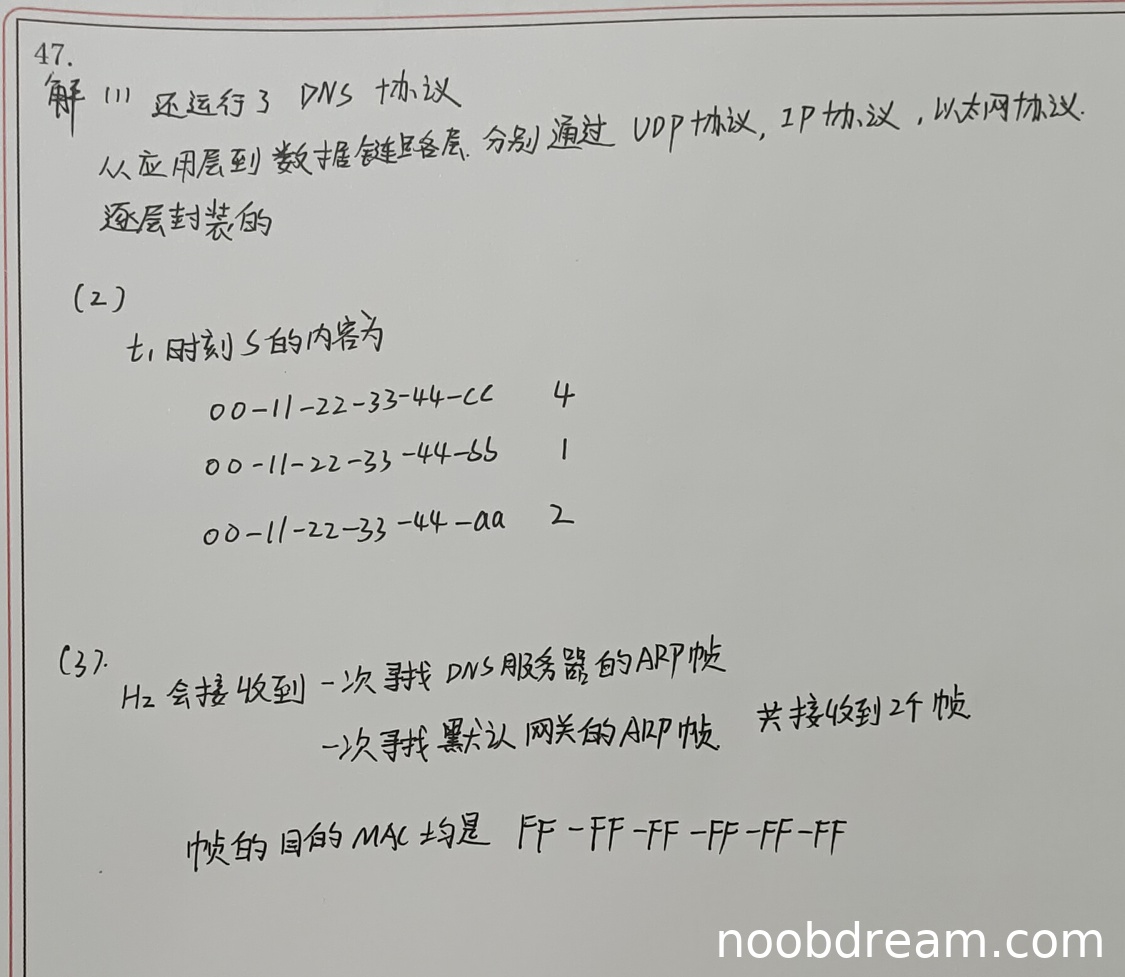 47.
解 (1) 还运行了 DNS 协议
从应用层到数据链路层. 分别通过 UDP协议, IP协议, 以太网协议.
逐层封装的
(2)
t₁时刻S的内容为
00-11-22-33-44-cc 4
00-11-22-33-44-bb 1
00-11-22-33-44-aa 2
(3).
H₂会接收到 一次寻找 DNS服务器的ARP帧
一次寻找默认网关的ARP帧 共接收到2个帧
帧的目的MAC均是 FF-FF-FF-FF-FF-FF
noobdream.com